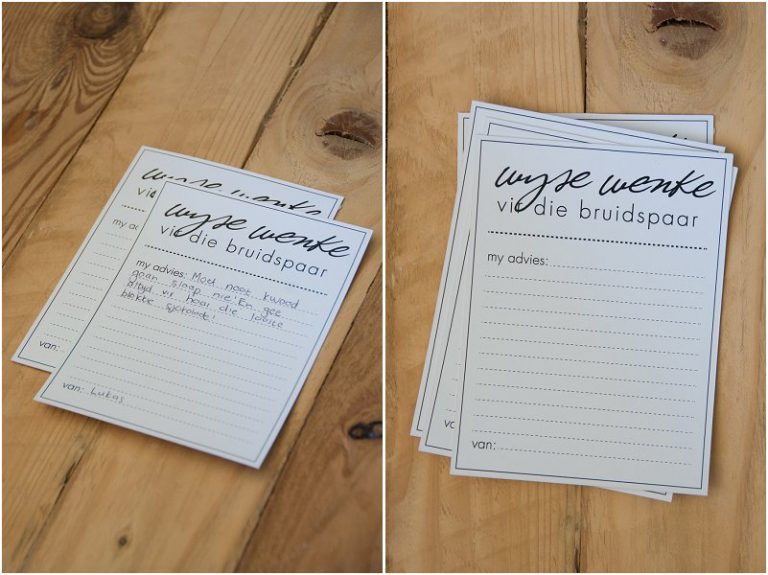 wyse wenke
vir
my ad
van:
wyse wenke
vir die bruidspaar
my advies: Moet nooit kwaad
gaan slaap nie! En gee
altyd vir haar die laaste
blokkie sjokolade!
van: Lukas
wyse wenke
vir die bruidspaar
my advies:
van: